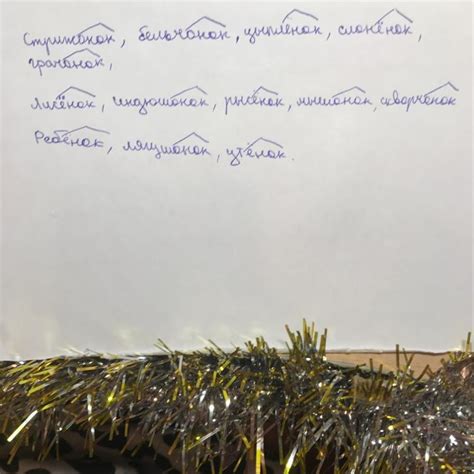 Стрижонок, бельчонок, цыплёнок, слонёнок,
грачонок,
Лисёнок, индюшонок, рысёнок, мышонок, скворчёнок
Ребёнок, лягушонок, утёнок.